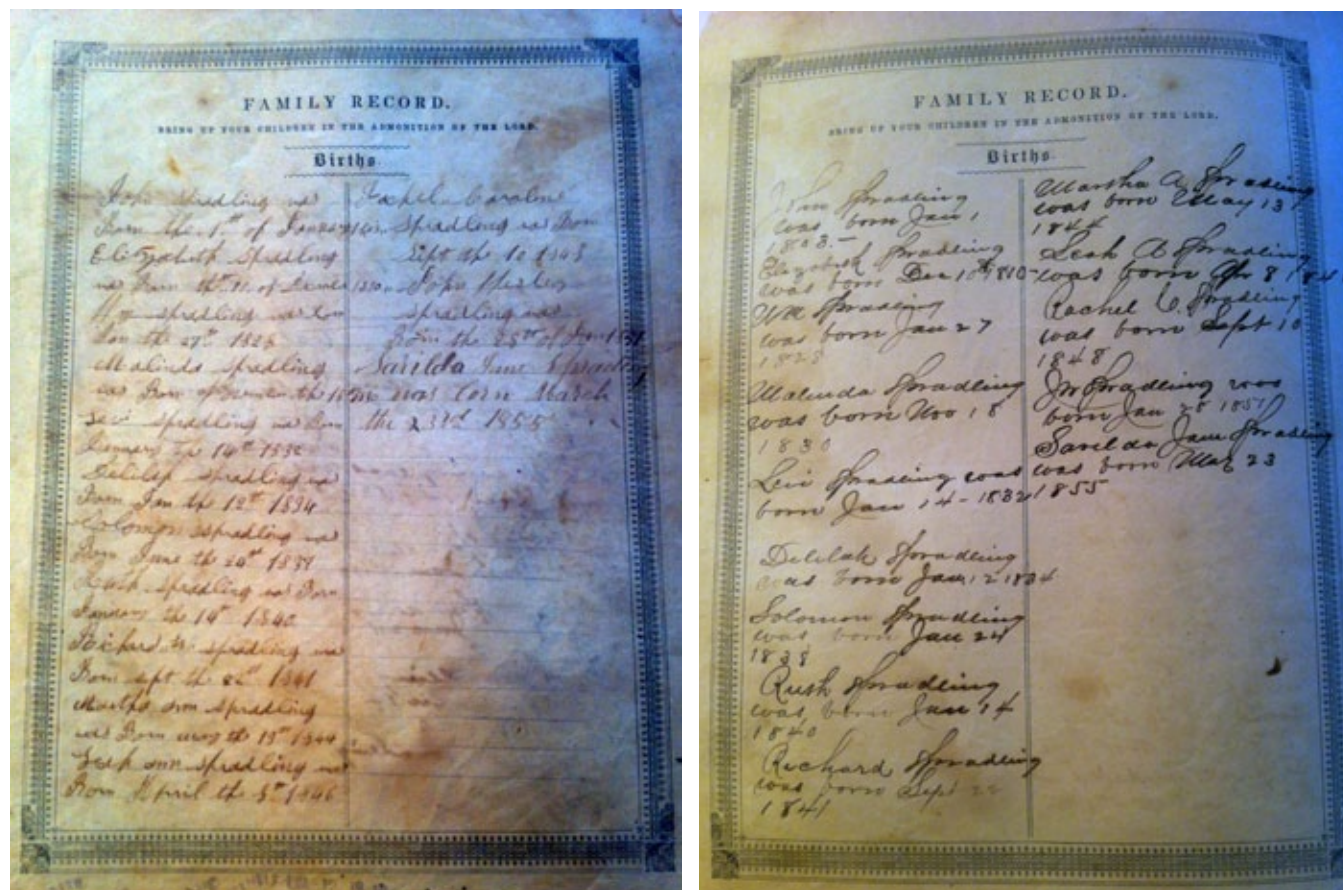 FAMILY RECORD.
BRING UP YOUR CHILDREN IN THE ADMONITION OF THE LORD.
Births
Spradling
Born the 1st of January
Elizabeth Spradling
was Born the of
Spradling was
the 27th 1828
Malinda Spradling
was Born the
Levi Spradling was Born
January the 14th 1832
Delilah Spradling was
Born Jan the 12th 1834
Solomon Spradling was
Born June the 24th
Rush Spradling was Born
January the 14th 1840
Richard Spradling was
Born Sept the 1841
Martha Ann Spradling
was Born May the 13th 1844
Leah Ann Spradling was
Born April the 8th 1846
Spradling was Born
Sept the 10 1848
Spradling was
Born the 28th of Jan 1851
Sarilda Jane Spradling
was Born March
the 23rd 1855
FAMILY RECORD.
BRING UP YOUR CHILDREN IN THE ADMONITION OF THE LORD.
Births
John Spradling
was born Jan 1
1803.-
Elizabeth Spradling
was born Dec 10th 1810-
Wm Spradling
was born Jan 27
1828
Malinda Spradling
was born Nov 18
1830
Levi Spradling was
born Jan 14-1832
Delilah Spradling
was born Jan 12 1834
Solomon Spradling
was born Jan 24
1838
Rush Spradling
was born Jan 14
1840
Richard Spradling
was born Sept 22
1841
Martha A Spradling
was born May 13
1844
Leah A Spradling
was born Apr 8 184
Rachel C. Spradling
was born Sept 10
1848
Spradling was
born Jan 28 1851
Sarilda Jane Spradling
was born Mar 23
1855